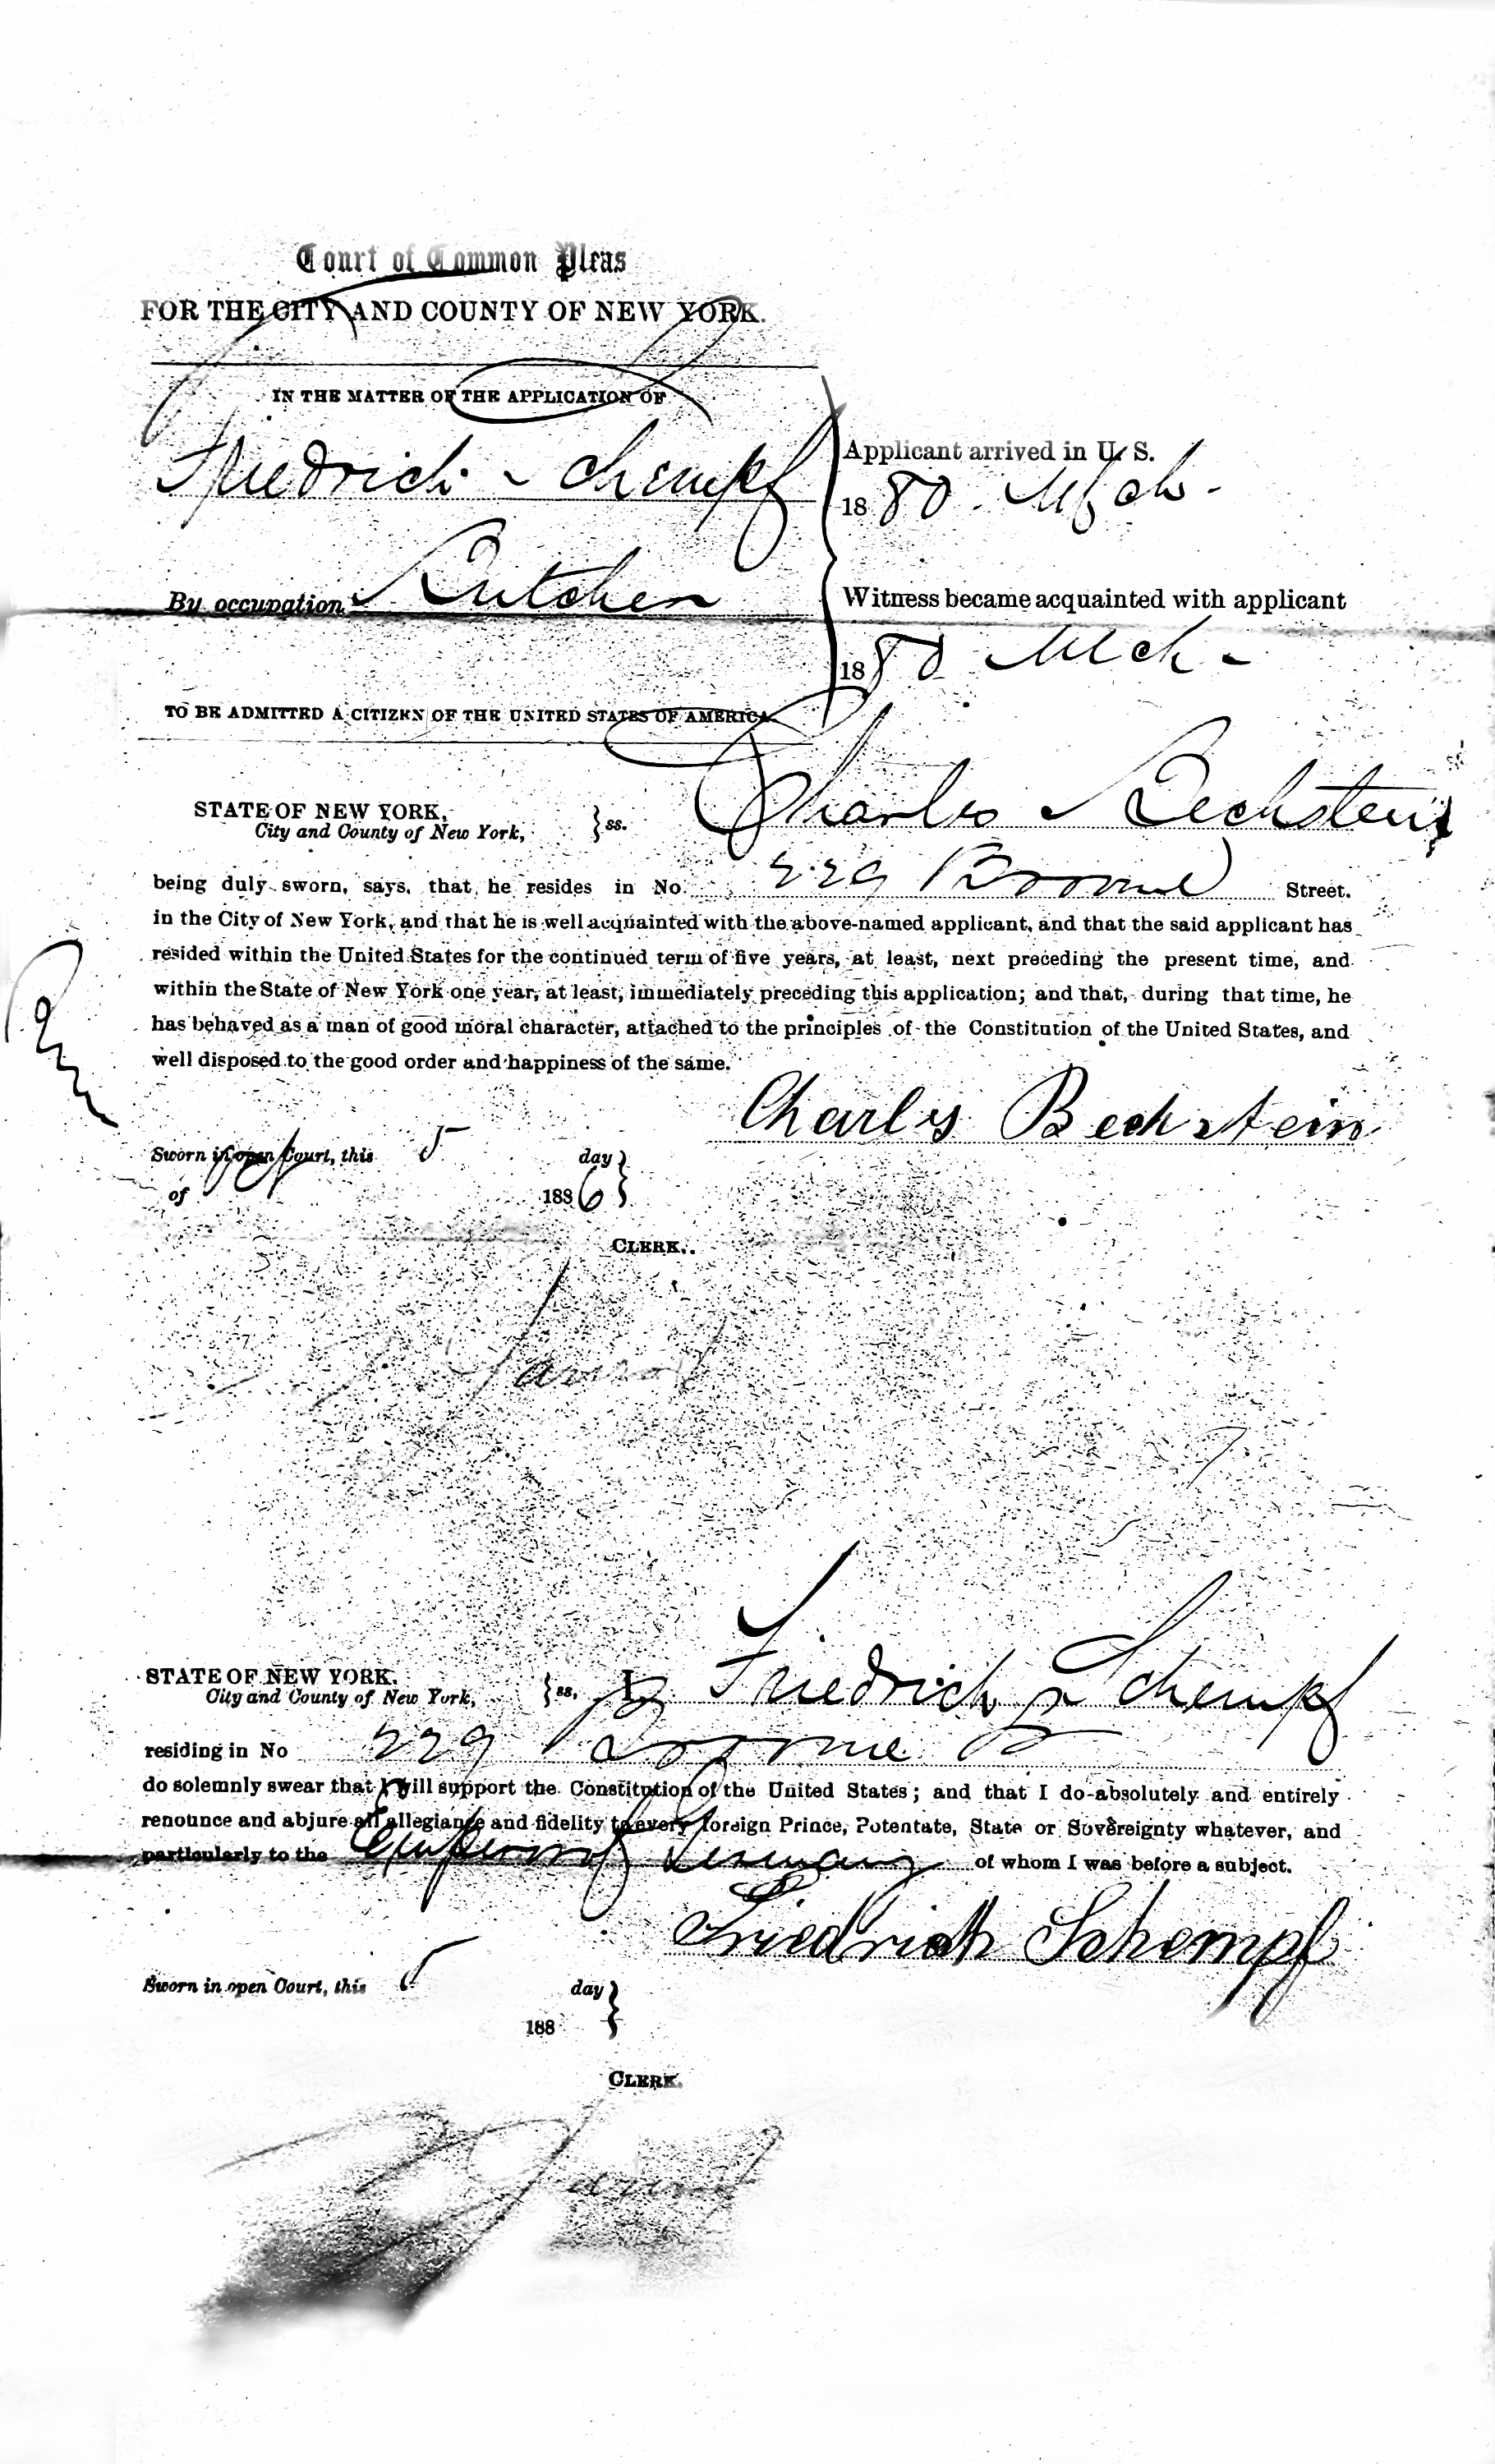 Court of Common Pleas
FOR THE CITY AND COUNTY OF NEW YORK.
IN THE MATTER OF THE APPLICATION OF
Friedrich Schempf
By occupation Butcher
TO BE ADMITTED A CITIZEN OF THE UNITED STATES OF AMERICA.
Applicant arrived in U. S.
1880 Mch -
Witness became acquainted with applicant
1880 Mch -
STATE OF NEW YORK,
City and County of New York, } ss. Charles Bechstein
being duly sworn, says, that he resides in No. 229 Broome Street.
in the City of New York, and that he is well acquainted with the above-named applicant, and that the said applicant has
resided within the United States for the continued term of five years, at least, next preceding the present time, and
within the State of New York one year, at least, immediately preceding this application; and that, during that time, he
has behaved as a man of good moral character, attached to the principles of the Constitution of the United States, and
well disposed to the good order and happiness of the same.
Charles Bechstein
Sworn in open Court, this 5 day }
of 1886 }
CLERK.
STATE OF NEW YORK,
City and County of New York, } ss. I, Friedrich Schempf
residing in No 229 Broome
do solemnly swear that I will support the Constitution of the United States; and that I do absolutely and entirely
renounce and abjure all allegiance and fidelity to every foreign Prince, Potentate, State or Sovereignty whatever, and
particularly to the Emperor of Germany of whom I was before a subject.
Friedrich Schempf
Sworn in open Court, this 5 day }
188 }
CLERK.